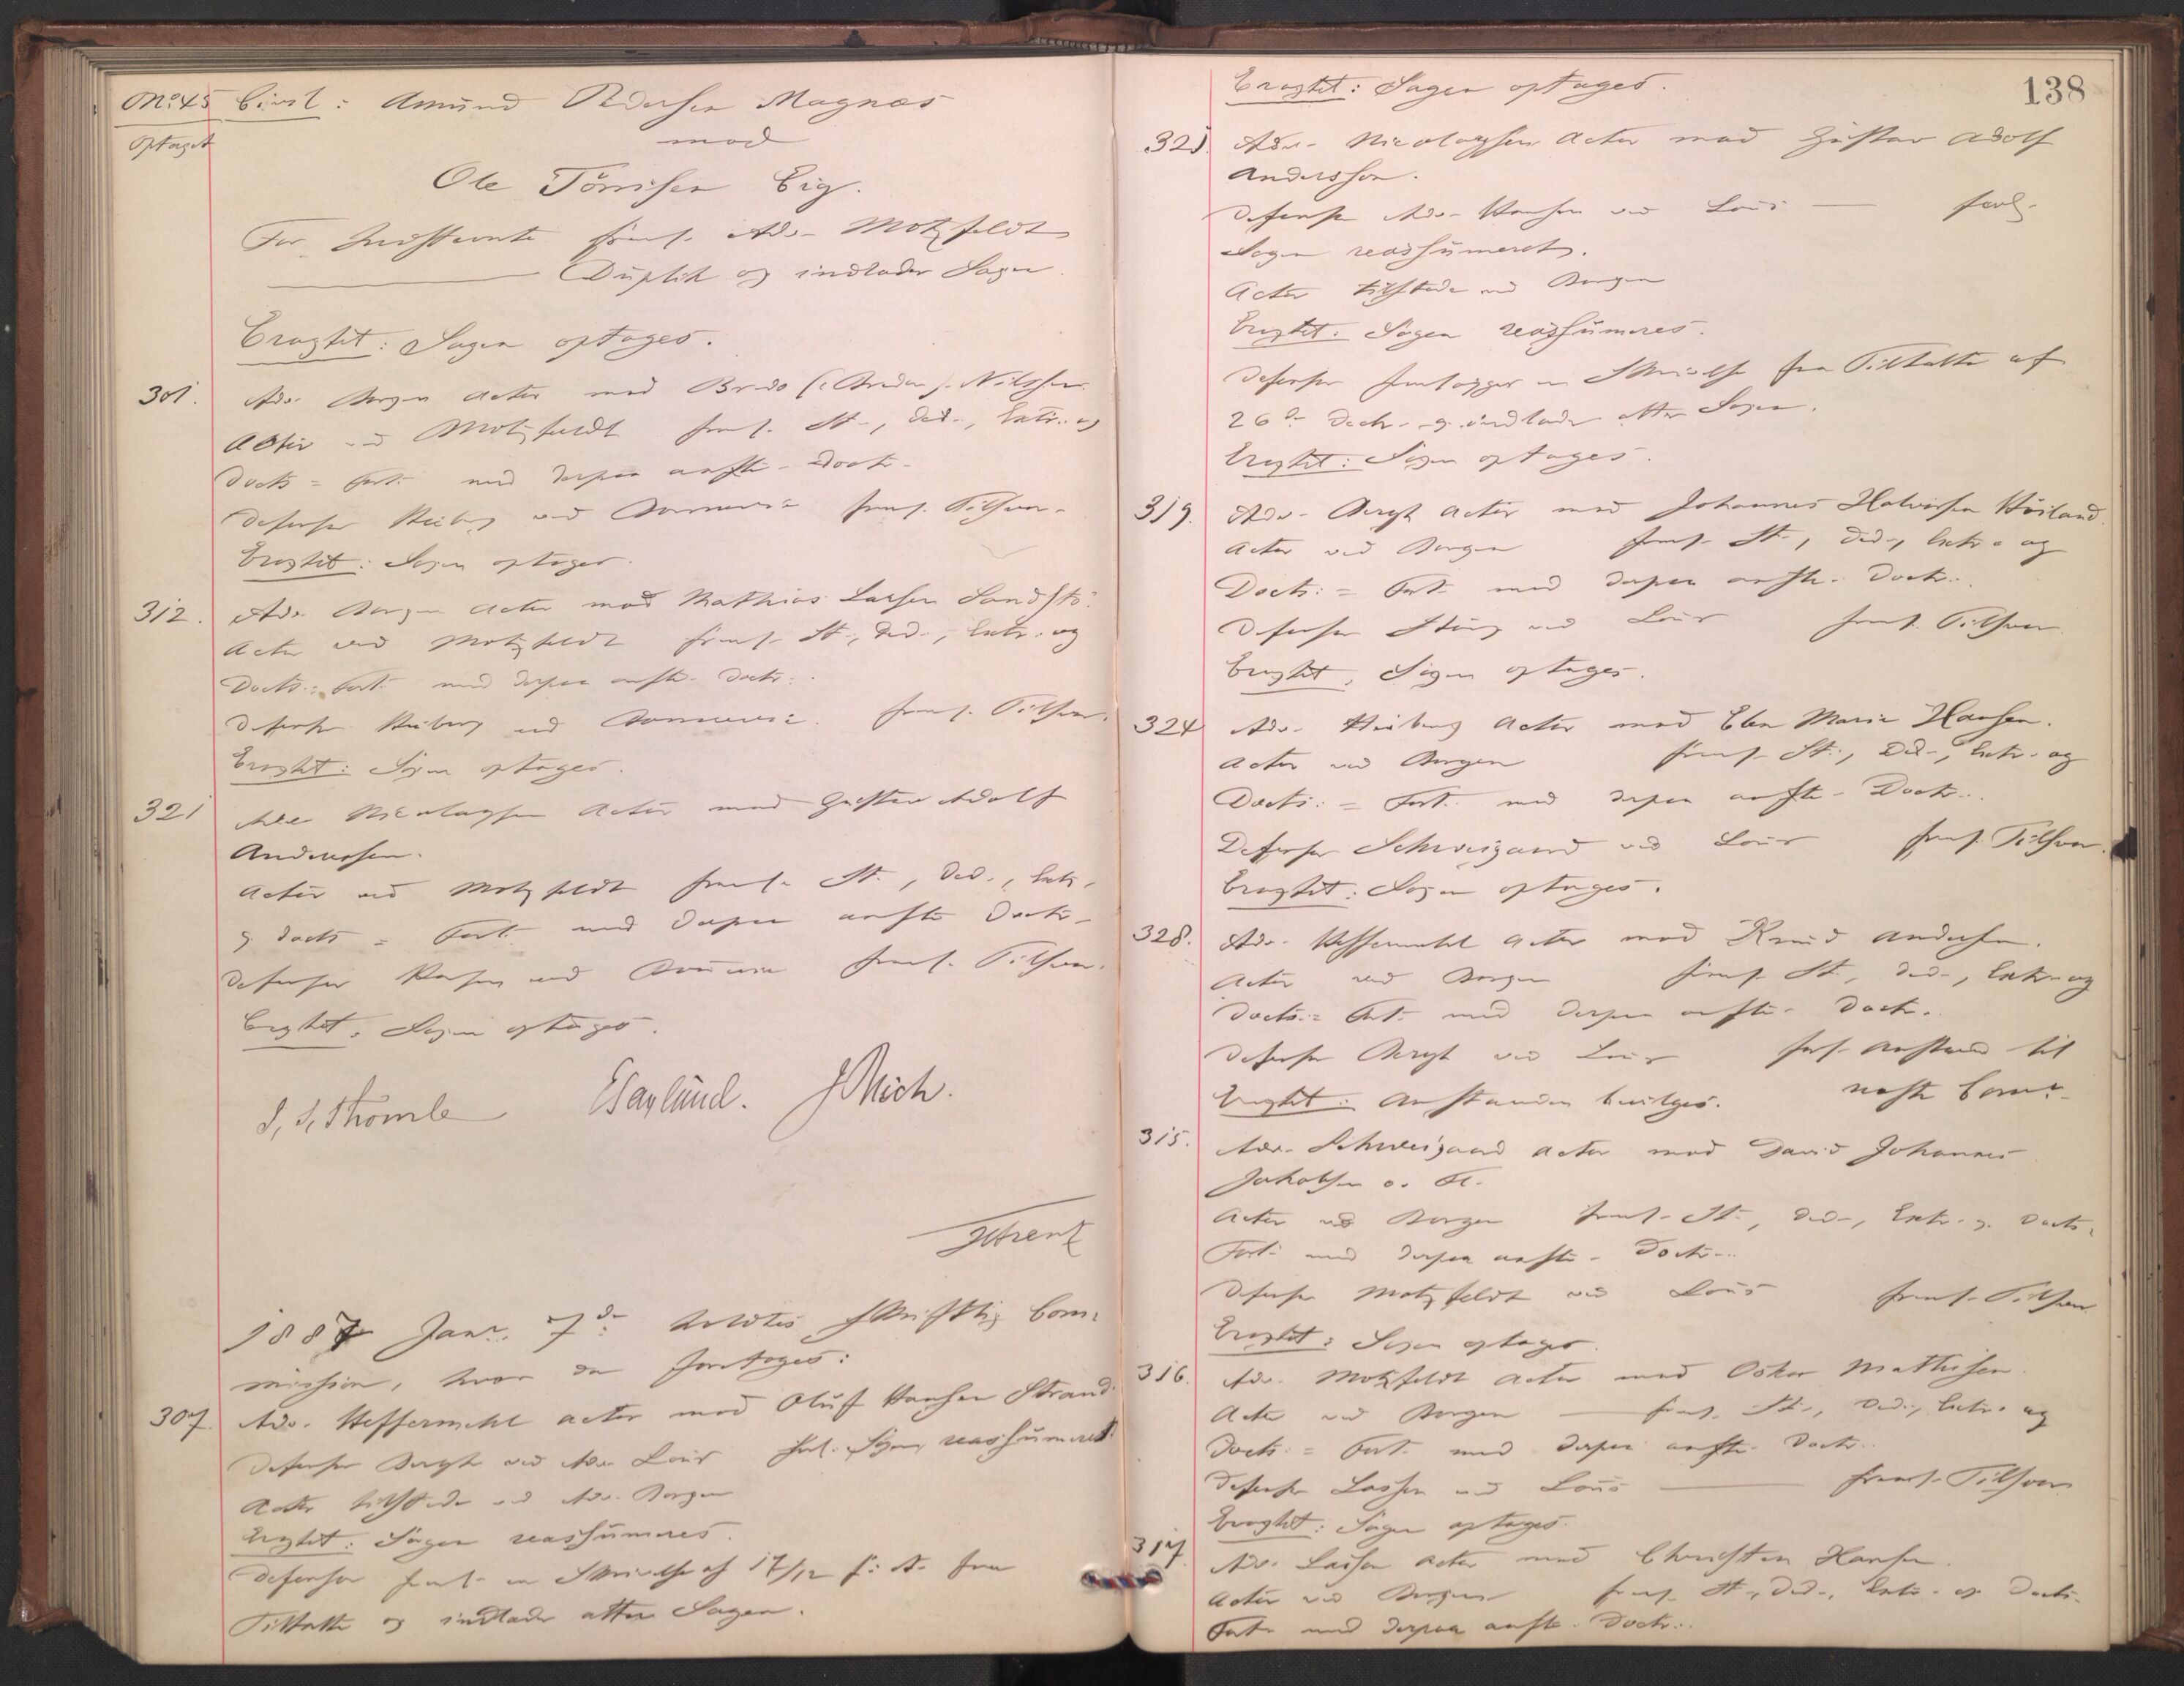 No 45 Civil: Amund Pedersen Magnæs
Optaget
mod
Ole Tönnisen Eig.
For Indstevnte freml. Adv. Motzfeldt
Duplik og indlader Sagen.
Eragtet: Sagen optages.
301. Adv. Borgen Actor mod Brede (: Bredon :) Nilssen.
Actor ved Motzfeldt freml. St., Ded., Extr. og
Docts = Fort. med derpaa anfte. Doctr.
Defensor Heiberg ved freml. Tilsvar.
Eragtet: Sagen optages.
312. Adv. Borgen Actor mod Mathias Larsen Sandstö.
Actor ved Motzfeldt freml. St., Ded., Extr. og
Docts.: Fort. med derpaa anfte. Doctr.
Defensor Heiberg ved freml. Tilsvar.
Eragtet: Sagen optages.
321 Adv. Nicolaysen Actor mod Gustav Adolf
Anderssen.
Actor ved Motzfeldt freml. St., Ded., Extr.
og Docts = Fort. med derpaa anfte Doctr.
Defensor ved freml. Tilsvar.
Eragtet: Sagen optages.
E Saxlund. J Mich.
1887 Janr. 7de holdtes skriftlig Com-
mission, hvor da foretoges:
307. Adv. Heffermehl Actor mod Oluf Hansen Strand.
Defensor Bergh ved Adv. Lous forl. Sagen reassumeret.
Actor tilstede ved Adv. Borgen
Eragtet: Sagen reassumeres.
Defensor freml. en Skrivelse af 17/12 f: A. fra
Tiltalte og indlader atter Sagen.
138
Eragtet: Sagen optages.
321. Adv. Nicolaysen Actor mod Gustav Adolf
Andersson.
Defensor Adv. Hansen ved Lous forl.
Sagen reassumeret.
Actor tilstede ved Borgen
Eragtet: Sagen reassumeres.
Defensor fremlægger en Skrivelse fra Tiltalte af
26de Decbr. og indlader atter Sagen.
Eragtet: Sagen optages.
319. Adv. Bergh Actor mod Johannes Halvorsen Höiland.
Actor ved Borgen freml. St., Ded., Extr. og
Docts: = Fort. med derpaa anfte. Doctr.
Defensor ved Lous freml. Tilsvar.
Eragtet: Sagen optages.
324 Adv. Heiberg Actor mod Elen Marie Hansen.
Actor ved Borgen freml. St., Ded., Extr. og
Docts: = Fort. med derpaa anfte. Doctr.
Defensor Schweigaard ved Lous freml. Tilsvar.
Eragtet: Sagen optages.
328. Adv. Heffermehl Actor mod Knud Andersen.
Actor ved Borgen freml. St., Ded., Extr. og
Docts = Fort. med derpaa anfte. Doctr.
Defensor Bergh ved Lous forl. Anstand til
Eragtet: Anstanden bevilges. næste Comn.
315. Adv. Schweigaard Actor mod David Johannes
Jakobsen o. Fl.
Actor ved Borgen freml. St., Ded., Extr. og Docts.
Fort. med derpaa anfte. Doctr.
Defensor Motzfeldt ved Lous freml. Tilsvar
Eragtet: Sagen optages.
316. Adv. Motzfeldt Actor mod Oskar Mathisen.
Actor ved Borgen freml. St., Ded., Extr. og
Docts: = Fort. med derpaa anfte. Doctr.
Defensor Lassen ved Lous freml. Tilsvar.
Eragtet: Sagen optages.
317. Adv. Lassen Actor mod Christen Hansen.
Actor ved Borgen freml. St., Ded., Extr. og Docts.
Fort. med derpaa anfte. Doctr.